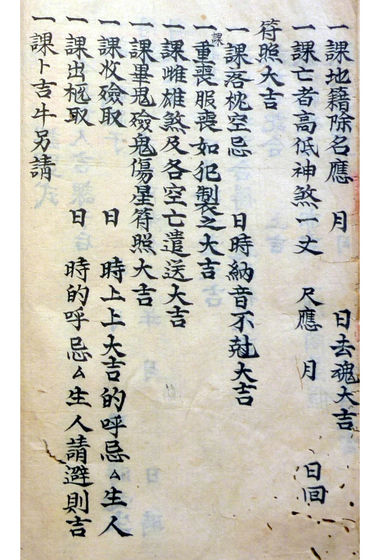 一課地籍除名應 月 日去魂大吉
一課亡者高低神煞一丈 尺應 月 日回
符照大吉
一課落枕空忌 日時納音不尅大吉
一課重喪服喪如犯製之大吉
一課雌雄煞及各空亡遣送大吉
一課畢鬼殮鬼傷星符照大吉
一課收殮取 日 時上上大吉的呼忌厶生人
一課出柩取 日 時的呼忌厶生人請避則吉
一課卜吉牛另請